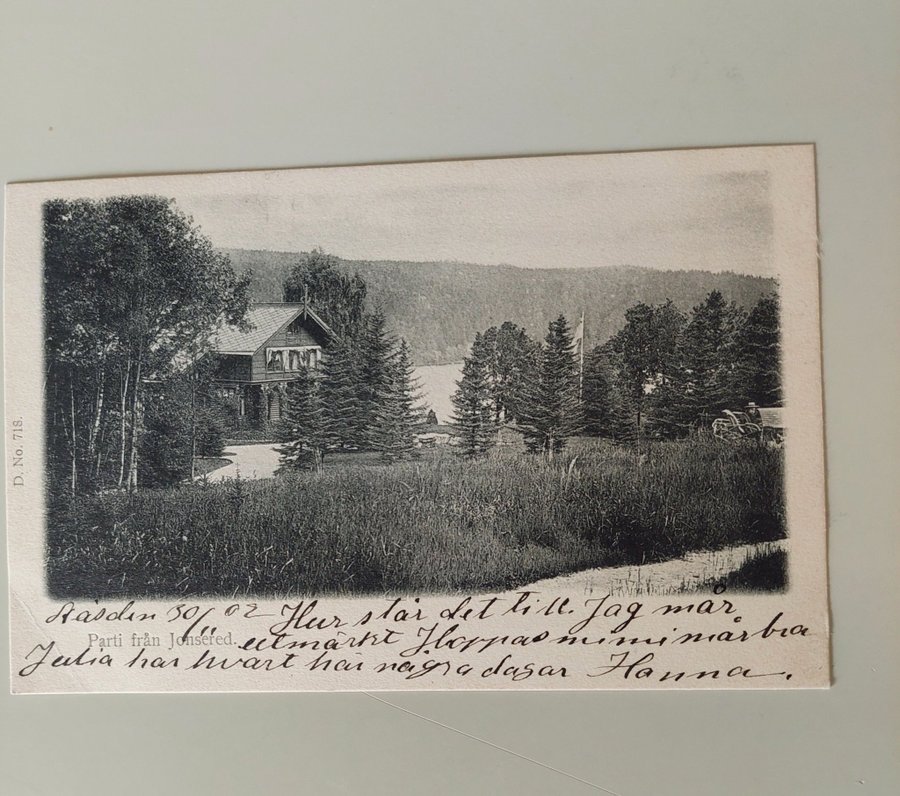 D. No. 718.
Råsden 30/ 02 Hur står det till. Jag mår
Parti från Jonsered.
utmärkt Hoppas mimi mår bra
Julia har hvart här några dagar Hanna.